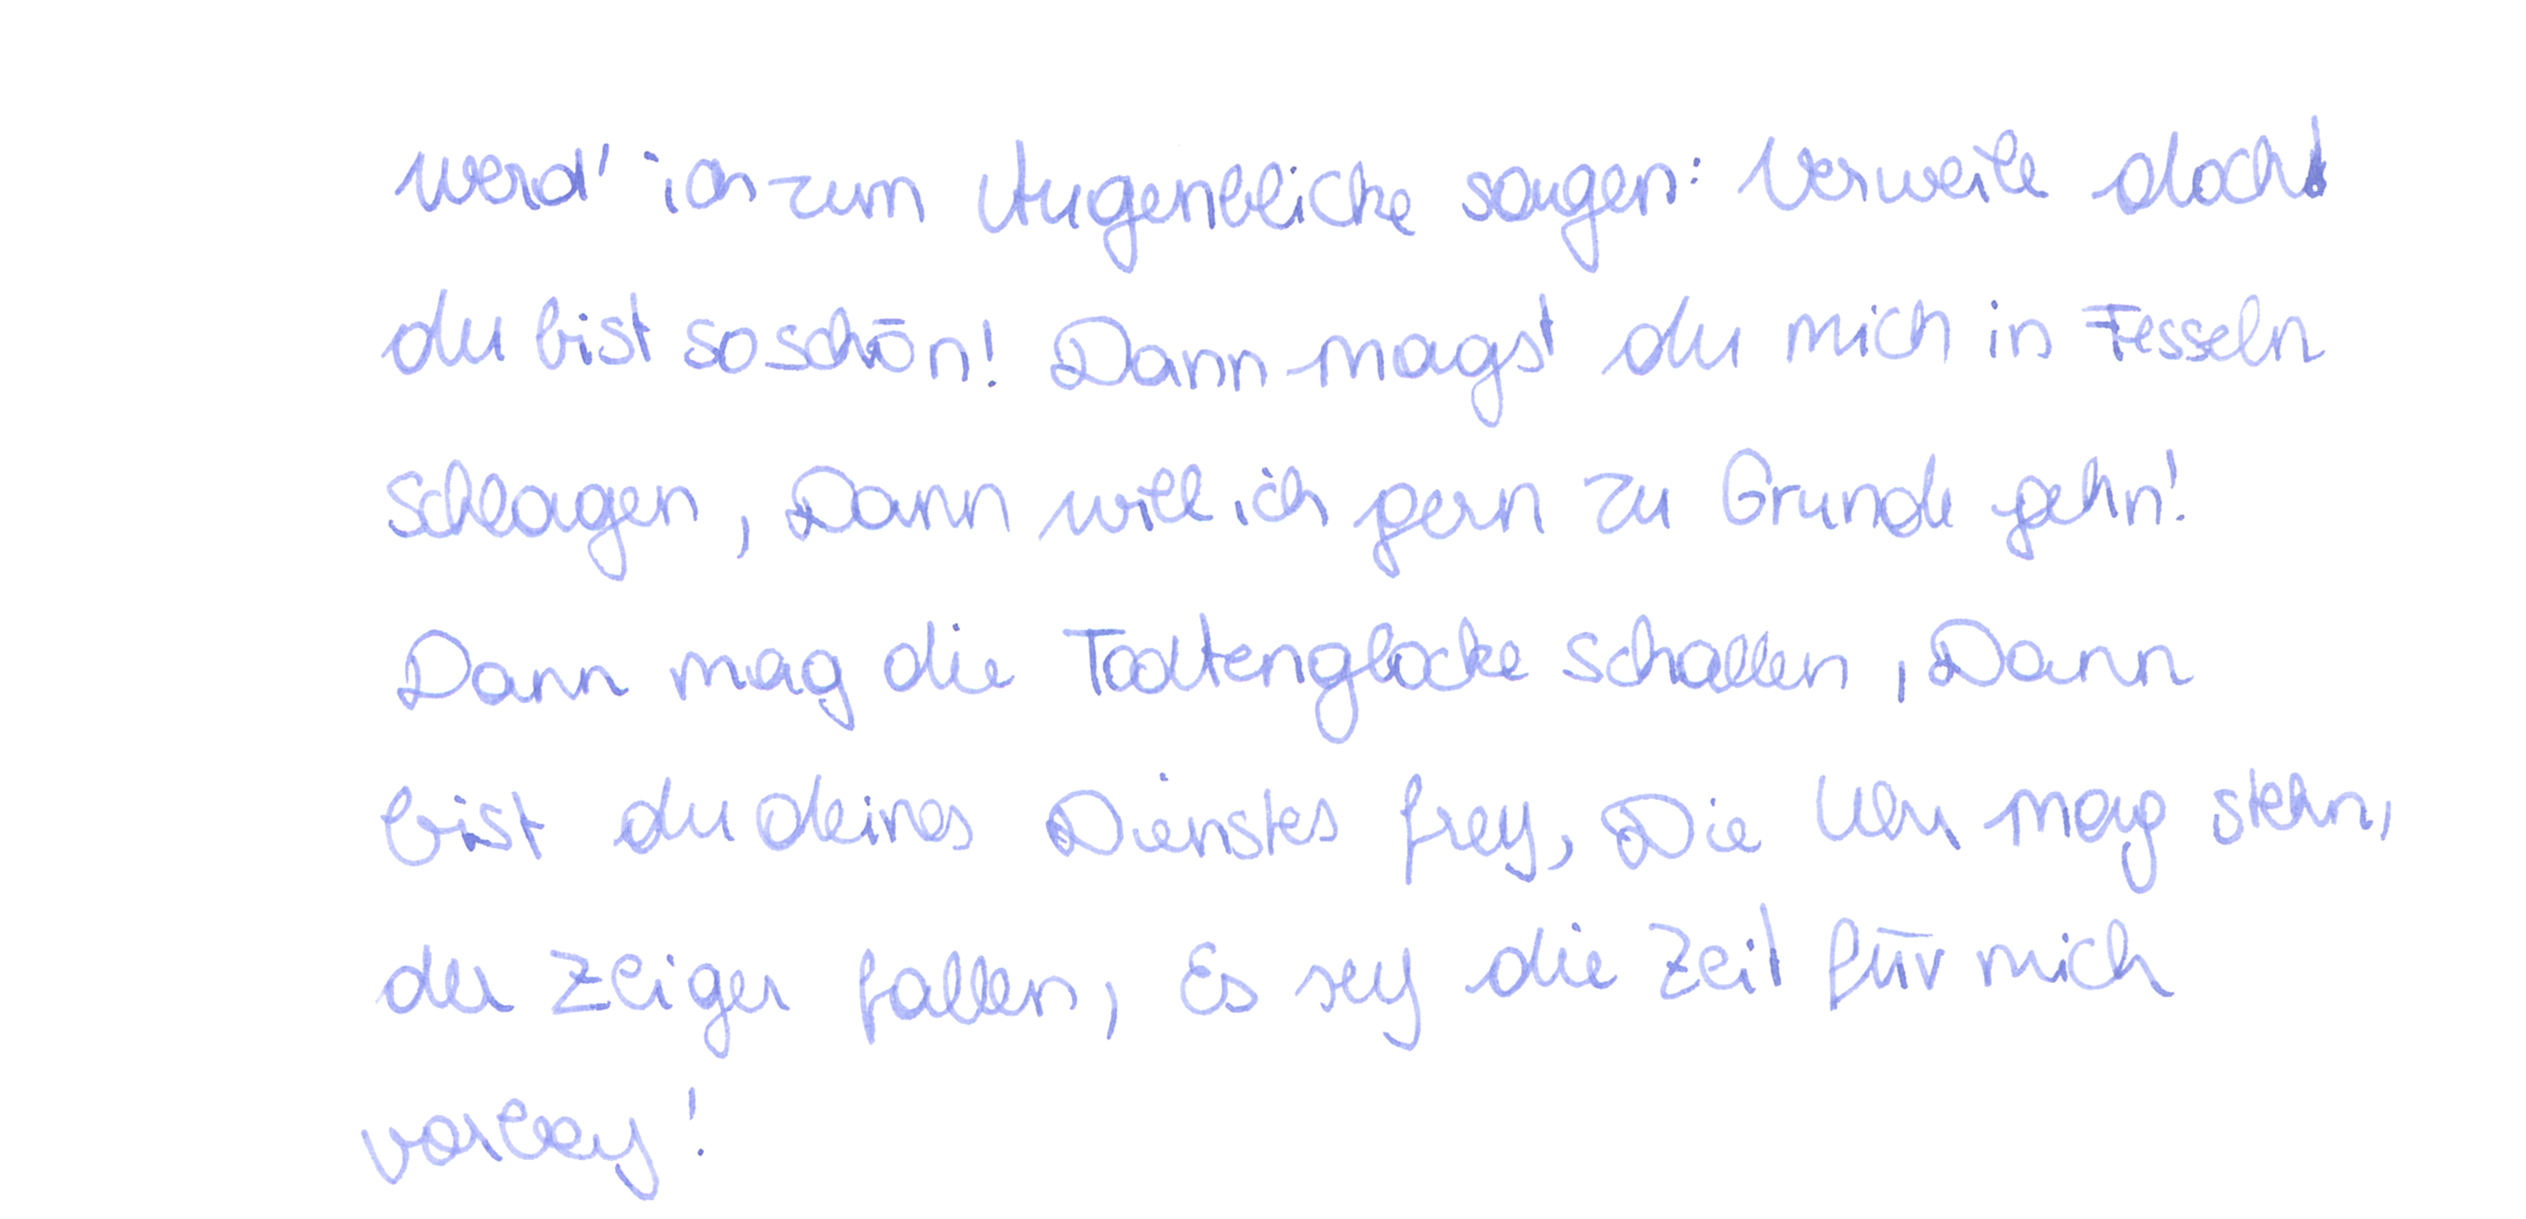 Werd' ich zum Augenblicke sagen: Verweile doch!
du bist so schön! Dann magst du mich in Fesseln
schlagen, Dann will ich gern zu Grunde gehn!
Dann mag die Todtenglocke schallen, Dann
bist du deines Dienstes frey, Die Uhr mag stehn,
der Zeiger fallen, Es sey die Zeit für mich
vorbey!